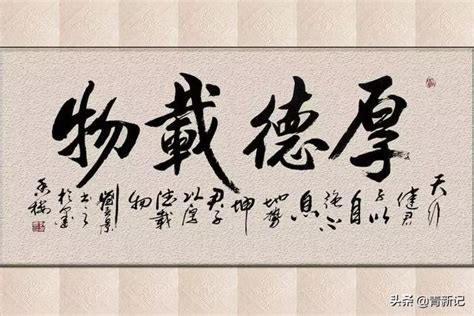 厚德載物
天行
健君
子以
自
強不
息
地勢
坤
君子
以厚
德載
物
头条 @箐新记